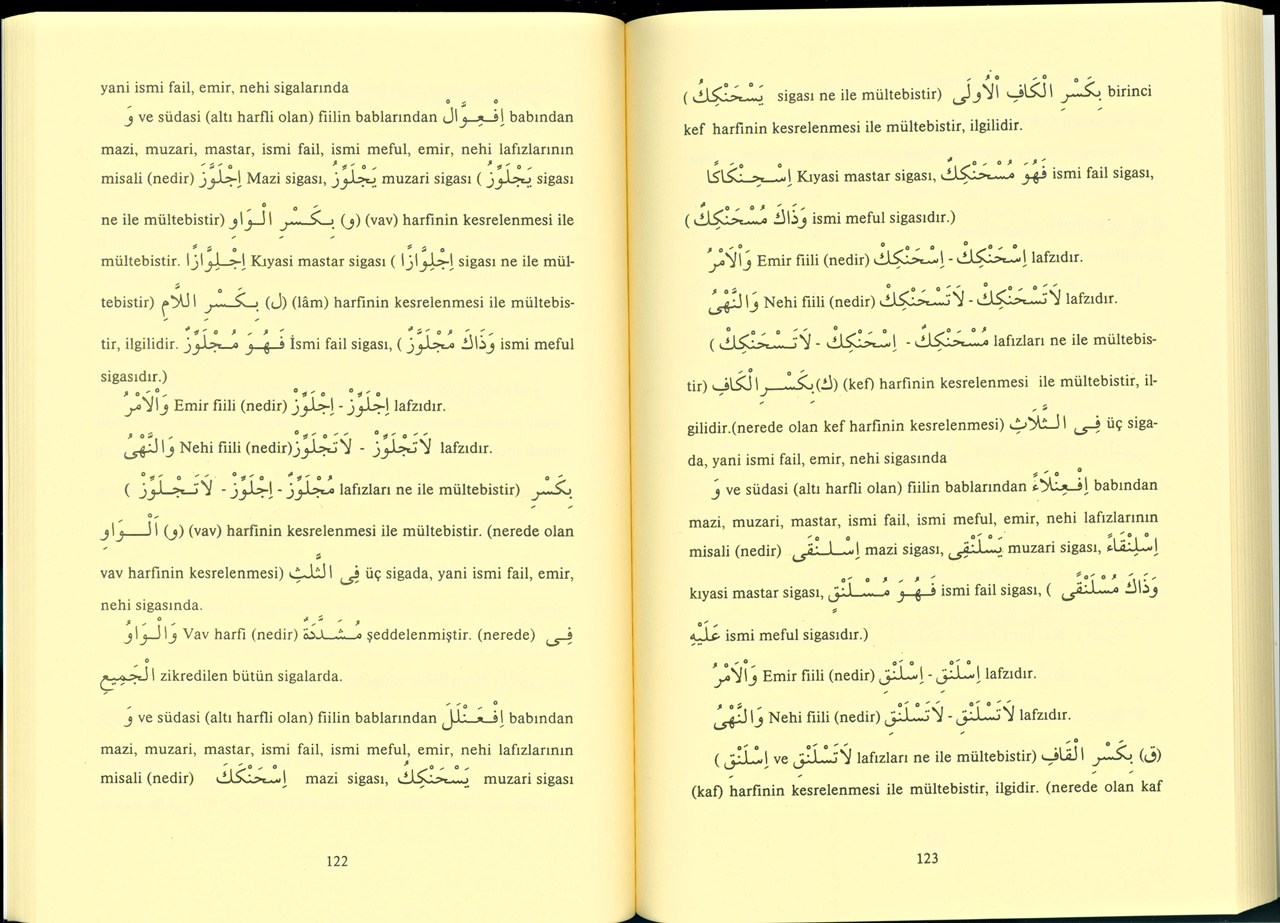 yani ismi fail, emir, nehi sigalarında
وَ ve südasi (altı harfli olan) fiilin bablarından اِفْعِوَّالْ babından
mazi, muzari, mastar, ismi fail, ismi meful, emir, nehi lafızlarının
misali (nedir) اِجْلَوَّزَ Mazi sigası, يَجْلَوِّزُ muzari sigası ( يَجْلَوِّزُ sigası
ne ile mültebistir) بِكَسْرِ الْوَاوِ (و) (vav) harfinin kesrelenmesi ile
mültebistir. اِجْلِوَّازًا Kıyasi mastar sigası ( اِجْلِوَّازًا sigası ne ile mül-
tebistir) بِكَسْرِ اللَّامِ (ل) (lâm) harfinin kesrelenmesi ile mültebis-
tir, ilgilidir. فَهُوَ مُجْلَوِّزٌ İsmi fail sigası, ( وَذَاكَ مُجْلَوَّزٌ ismi meful
sigasıdır.)
وَالْاَمْرُ Emir fiili (nedir) اِجْلَوِّزْ - اِجْلَوِّزْ lafzıdır.
وَالنَّهْىُ Nehi fiili (nedir) لَاتَجْلَوِّزْ - لَاتَجْلَوِّزْ lafzıdır.
( مُجْلَوِّزٌ - اِجْلَوِّزْ - لَاتَجْلَوِّزْ lafızları ne ile mültebistir) بِكَسْرِ
الْوَاوِ (و) (vav) harfinin kesrelenmesi ile mültebistir. (nerede olan
vav harfinin kesrelenmesi) فِى الثَّلٰثِ üç sigada, yani ismi fail, emir,
nehi sigasında.
وَالْوَاوُ Vav harfi (nedir) مُشَدَّدَةٌ şeddelenmiştir. (nerede) فِى
الْجَمِيعِ zikredilen bütün sigalarda.
وَ ve südasi (altı harfli olan) fiilin bablarından اِفْعَنْلَلَ babından
mazi, muzari, mastar, ismi fail, ismi meful, emir, nehi lafızlarının
misali (nedir) اِسْحَنْكَكَ mazi sigası, يَسْحَنْكِكُ muzari sigası
122
( يَسْحَنْكِكُ sigası ne ile mültebistir) بِكَسْرِ الْكَافِ الْاُولٰى birinci
kef harfinin kesrelenmesi ile mültebistir, ilgilidir.
اِسْحِنْكَاكًا Kıyasi mastar sigası, فَهُوَ مُسْحَنْكِكٌ ismi fail sigası,
( وَذَاكَ مُسْحَنْكَكٌ ismi meful sigasıdır.)
وَالْاَمْرُ Emir fiili (nedir) اِسْحَنْكِكْ - اِسْحَنْكِكْ lafzıdır.
وَالنَّهْىُ Nehi fiili (nedir) لَاتَسْحَنْكِكْ - لَاتَسْحَنْكِكْ lafzıdır.
( مُسْحَنْكِكٌ - اِسْحَنْكِكْ - لَاتَسْحَنْكِكْ lafızları ne ile mültebis-
tir) بِكَسْرِ الْكَافِ (ك) (kef) harfinin kesrelenmesi ile mültebistir, il-
gilidir.(nerede olan kef harfinin kesrelenmesi) فِى الثَّلَاثِ üç siga-
da, yani ismi fail, emir, nehi sigasında
وَ ve südasi (altı harfli olan) fiilin bablarından اِفْعِنْلَاءً babından
mazi, muzari, mastar, ismi fail, ismi meful, emir, nehi lafızlarının
misali (nedir) اِسْلَنْقَى mazi sigası, يَسْلَنْقِى muzari sigası, اِسْلِنْقَاءً
kıyasi mastar sigası, فَهُوَ مُسْلَنْقٍ ismi fail sigası, ( وَذَاكَ مُسْلَنْقًى
عَلَيْهِ ismi meful sigasıdır.)
وَالْاَمْرُ Emir fiili (nedir) اِسْلَنْقِ - اِسْلَنْقِ lafzıdır.
وَالنَّهْىُ Nehi fiili (nedir) لَاتَسْلَنْقِ - لَاتَسْلَنْقِ lafzıdır.
( اِسْلَنْقِ ve لَاتَسْلَنْقِ lafızları ne ile mültebistir) بِكَسْرِ الْقَافِ (ق)
(kaf) harfinin kesrelenmesi ile mültebistir, ilgidir. (nerede olan kaf
123